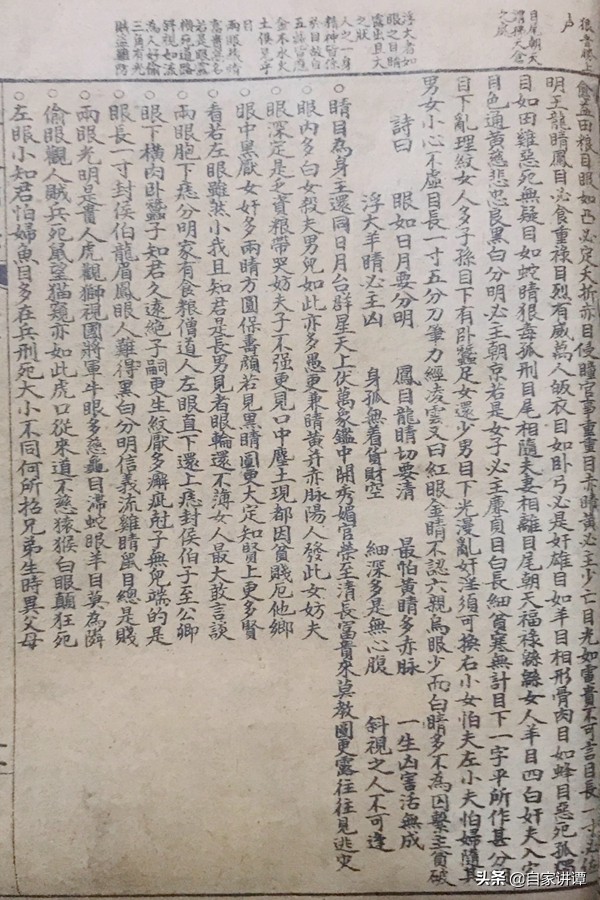 目尾朝天
浮大者如
眼之目睛
露出且大
之狀
人之一身
精神皆係
於目故白
五臟皆應
金木水火
土俱是乎
目
為人好偷
三角有光
明主龍睛鳳目必食重祿目烈有威萬人皈衣目如卧弓必是奸雄目如羊目相形骨肉目如蜂目惡死孤
目如田雞惡死無疑目如蛇睛狠毒孤刑目尾相隨夫妻相離目尾朝天福祿綿綿女人羊目四白奸夫入宅
目色通黃慈悲忠良黑白分明必主朝京若是女子必主廉貞目白長細貧寒無計目下一字平所作甚分明
目下亂理紋女人多子孫目下有卧蠶足女還少男目下光漫亂奸淫須可換右小女怕夫左小夫怕婦隨其
男女小心不虛目長一寸五分刀筆力經凌雲又曰紅眼金睛不認六親烏眼少而白睛多不為囚繫主貧破
詩曰
眼如日月要分明 鳳目龍睛切要清 最怕黃睛多赤脉 一生凶害活無成
浮大羊睛必主凶 身孤無着貨財空 細深多是無心腹 斜視之人不可逢
○睛目為身主還同日月台群星天上伏萬象鑑中開秀媚官榮至清長富貴來莫教圓更露往往見逃灾
○眼內多白女殺夫男兒如此亦多愚更兼睛黃并赤脉陽人發此女妨夫
○眼深定是乏資粮帶哭妨夫子不强更見口中塵土現都因貧賤厄他鄉
○眼中黑厭女奸多兩睛方圓保壽顏若見黑睛圓更大定知賢上更多賢
○看若左眼雖然小我且知君是長男見者眼輪還不薄女人最大敢言談
○兩眼胞下痣分明家有食粮僧道人左眼直下還上痣封侯伯子至公卿
○眼下橫肉卧蠶子知君久遠絕子嗣更生紋厭多癬疵尅子無兒端的是
○眼長一寸封侯伯龍眉鳳眼人難得黑白分明信義流雞睛鼠目總是賤
○兩眼光明是貴人虎觀獅視國將軍牛眼多慈龜目滯蛇眼羊目莫為隣
○偷眼觀人賊兵死鼠望猫窺亦如此虎口從來道不慈猿猴白眼顛狂死
○左眼小知君怕婦魚目多在兵刑死大小不同何所招兄弟生時異父母
头条 @自家讲谭